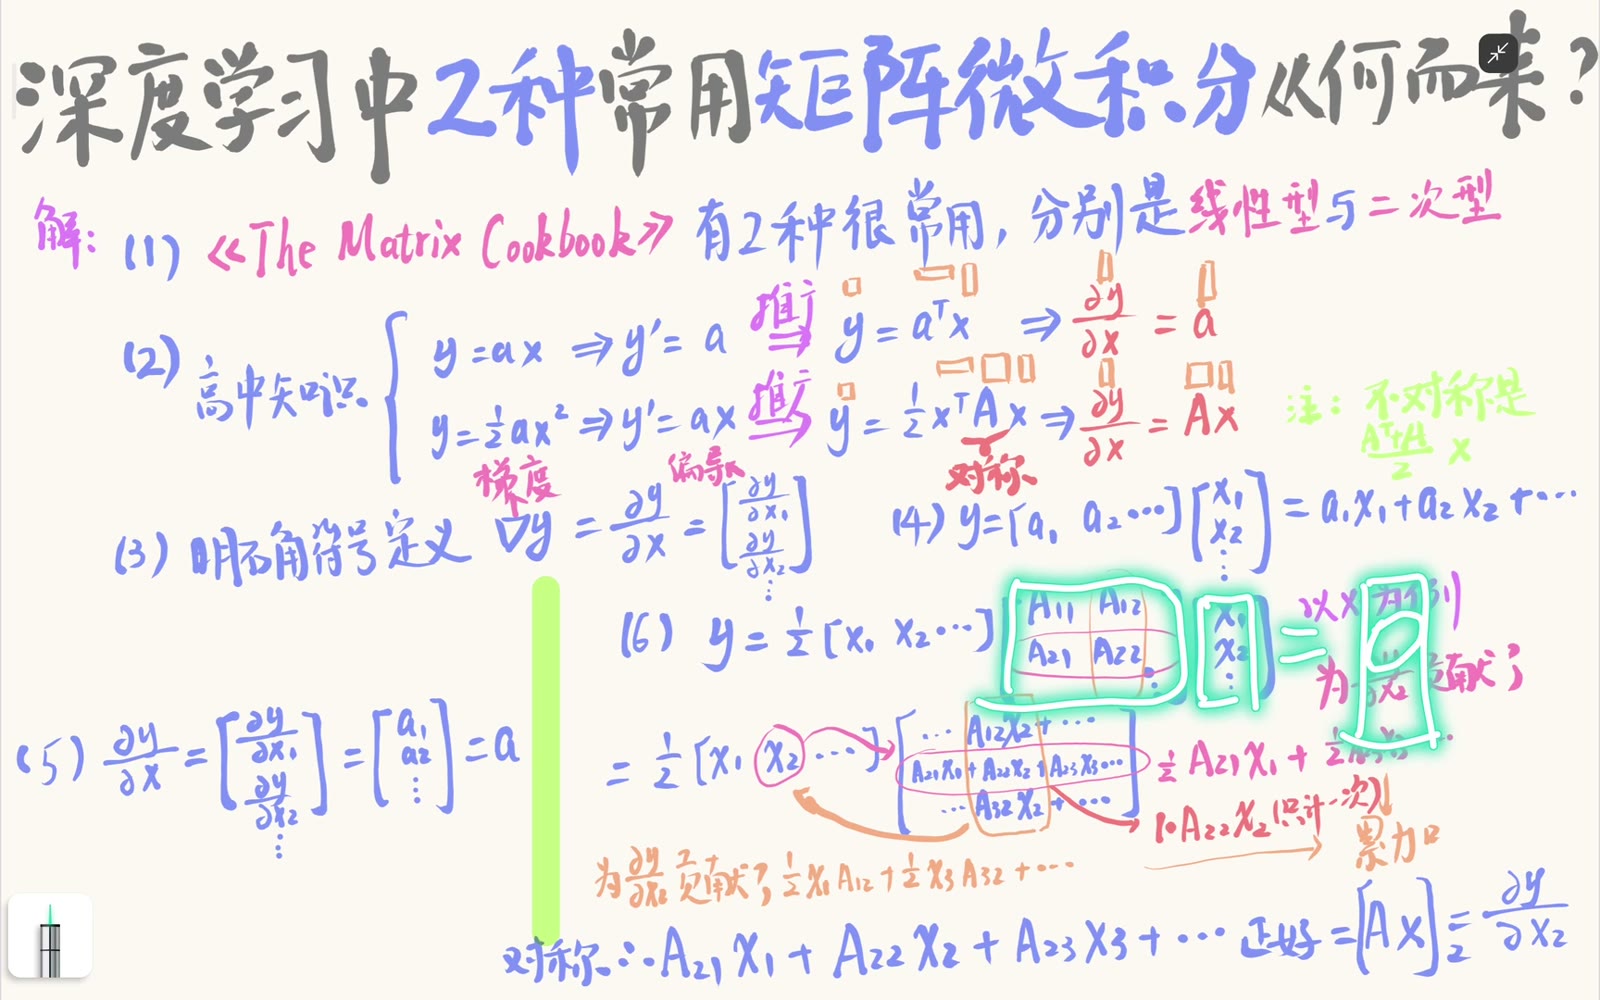 深度学习中2种常用矩阵微积分从何而来?
解: (1) 《The Matrix Cookbook》 有2种很常用, 分别是线性型与二次型
(2) 高中知识
y=ax ⇒ y'=a 推广⇒ y=aᵀx ⇒ ∂y/∂x = a
y=½ax² ⇒ y'=ax 推广⇒ y=½xᵀAx ⇒ ∂y/∂x = Ax
对称
注: 不对称是 (Aᵀ+A)/2 x
梯度 偏导
(3) 明确符号定义 ∇y = ∂y/∂x = [∂y/∂x₁ ∂y/∂x₂ ⋮]
(4) y=[a₁ a₂…][x₁ x₂ ⋮] = a₁x₁+a₂x₂+…
(5) ∂y/∂x = [∂y/∂x₁ ∂y/∂x₂ ⋮] = [a₁ a₂ ⋮] = a
(6) y=½[x₁ x₂…][A₁₁ A₁₂ A₂₁ A₂₂ ⋱][x₁ x₂ ⋮] =
以x₂为例
为∂y/∂x₂贡献了
=½[x₁ x₂ …][…A₁₂x₂+… A₂₁x₁+A₂₂x₂+A₂₃x₃… …A₃₂x₂+…]
½A₂₁x₁+½A₂₃x₃…
10A₂₂x₂(只计一次)
累加
为∂y/∂x₂贡献了½x₁A₁₂+½x₃A₃₂+…
对称∴A₂₁x₁+A₂₂x₂+A₂₃x₃+… 正好=[Ax]₂=∂y/∂x₂